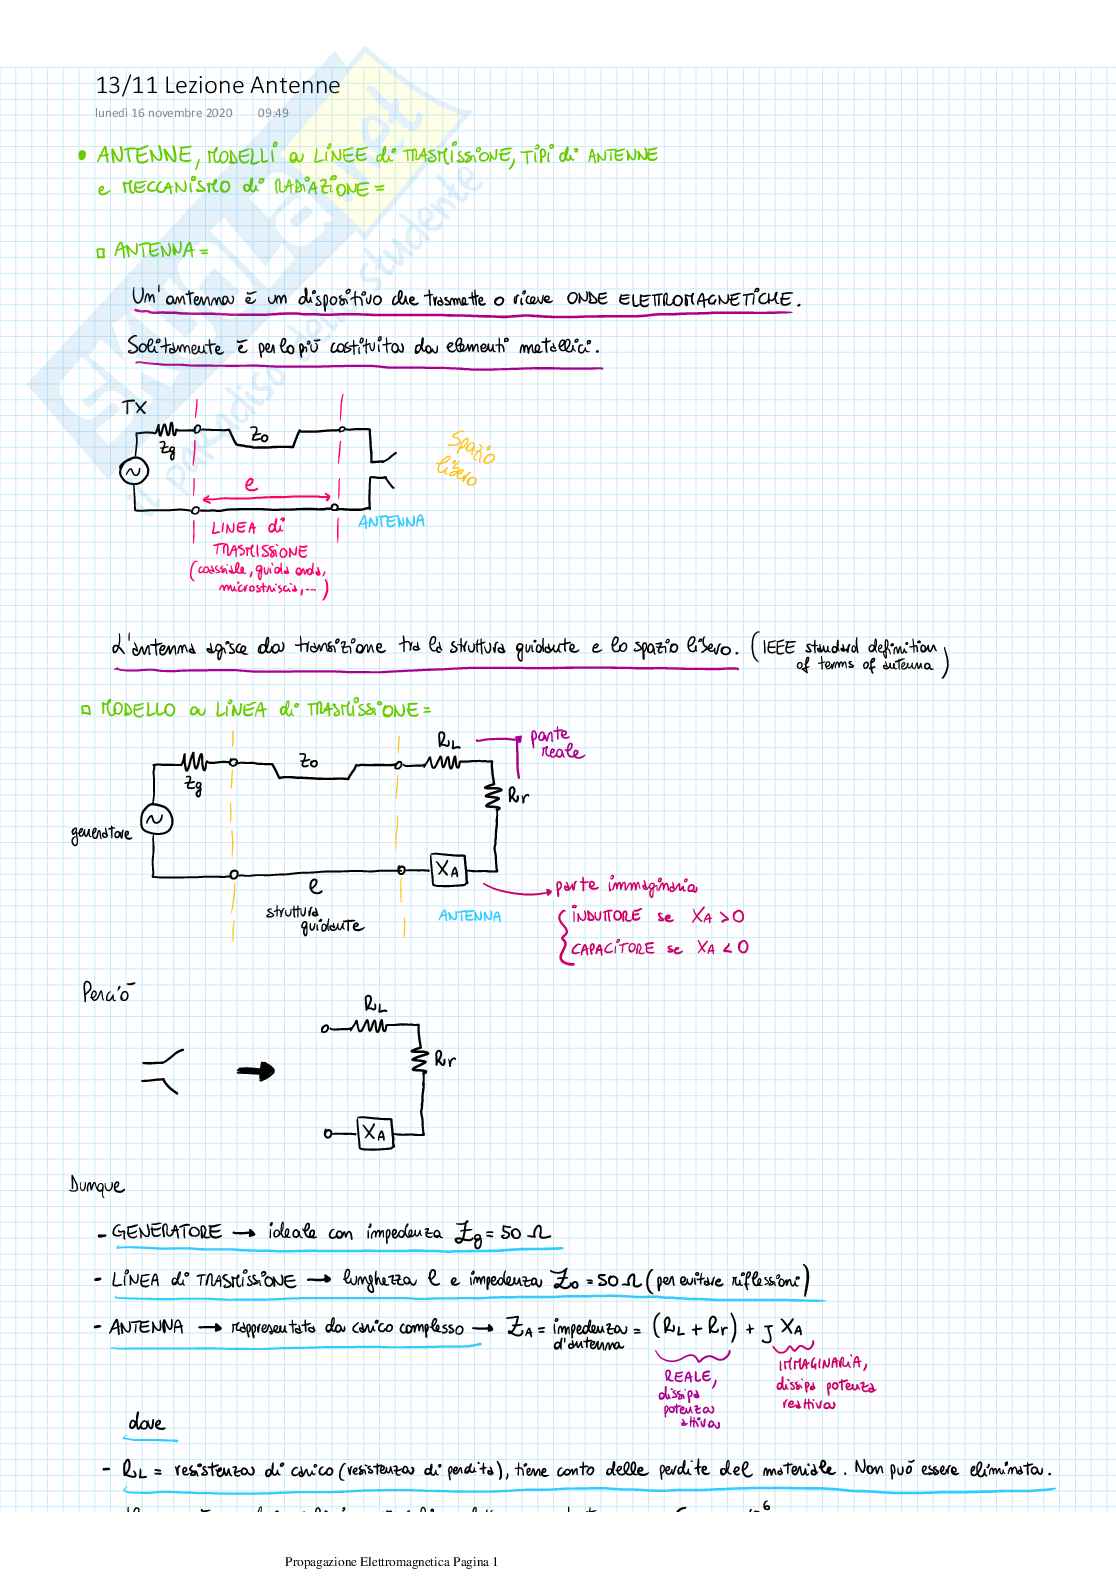 13/11 Lezione Antenne
lunedì 16 novembre 2020 09:49
• ANTENNE, MODELLI a LINEE di TRASMISSIONE, TIPI di ANTENNE
e MECCANISMO di RADIAZIONE =
ANTENNA =
Un'antenna è un dispositivo che trasmette o riceve ONDE ELETTROMAGNETICHE.
Solitamente è per lo più costituita da elementi metallici.
TX
Zg
Z0
l
Spazio
libero
LINEA di
TRASMISSIONE
(coassiale, guida onda,
microstriscia, ...)
ANTENNA
L'antenna agisce da transizione tra la struttura guidante e lo spazio libero. (IEEE standard definition
of terms of antenna)
MODELLO a LINEA di TRASMISSIONE =
RL
parte
reale
Zg
Z0
Rr
generatore
XA
l
struttura
guidante
ANTENNA
parte immaginaria
INDUTTORE se XA > 0
CAPACITORE se XA < 0
Perciò
RL
Rr
XA
Dunque
- GENERATORE → ideale con impedenza Zg = 50 Ω
- LINEA di TRASMISSIONE → lunghezza l e impedenza Z0 = 50 Ω (per evitare riflessioni)
- ANTENNA → rappresentata da carico complesso → ZA = impedenza d'antenna = (RL + Rr) + J XA
REALE,
dissipa
potenza
attiva
IMMAGINARIA,
dissipa potenza
reattiva
dove
- RL = resistenza di carico (resistenza di perdita), tiene conto delle perdite del materiale. Non può essere eliminata.
Propagazione Elettromagnetica Pagina 1